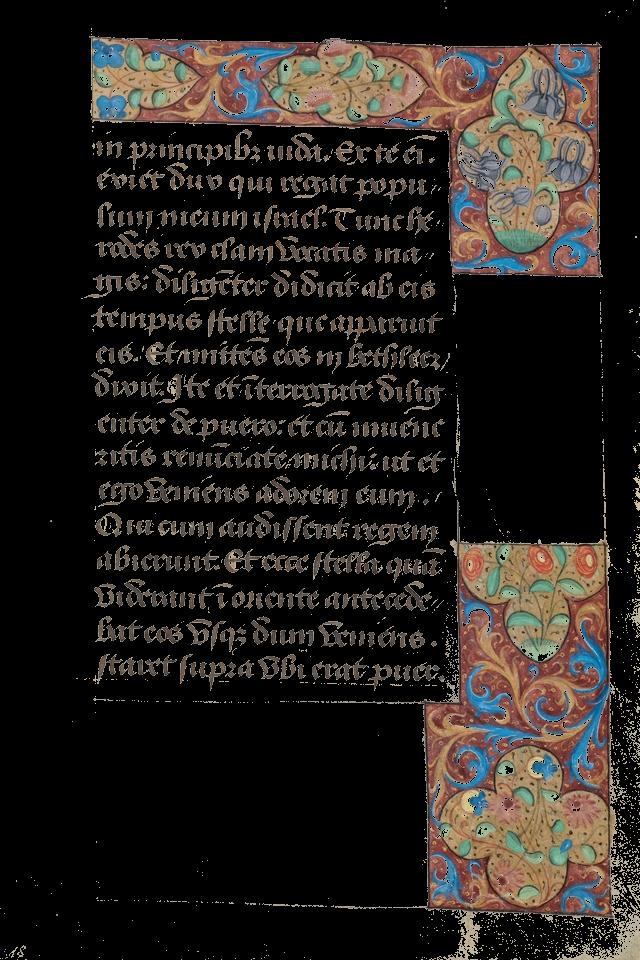 in principibꝫ iuda. Ex te ei̅.
exiet dux qui regat popu-
lum meum israel. Tunc he-
rodes rex clam vocatis ma-
gis: dilige̅ter didicit ab eis
tempus stelle que apparuit
eis. Et mite̅s eos in bethleem
dixit. Ite et i̅terrogate dilig
enter de puero: et cu̅ inuene
ritis renu̅ciate michi: ut et
ego veniens adorem eum.
Qui cum audissent regem
abierunt. Et ecce stella qua̅
viderant i̅ oriente antecede-
bat eos vsqꝫ dum veniens.
staret supra vbi erat puer.
18